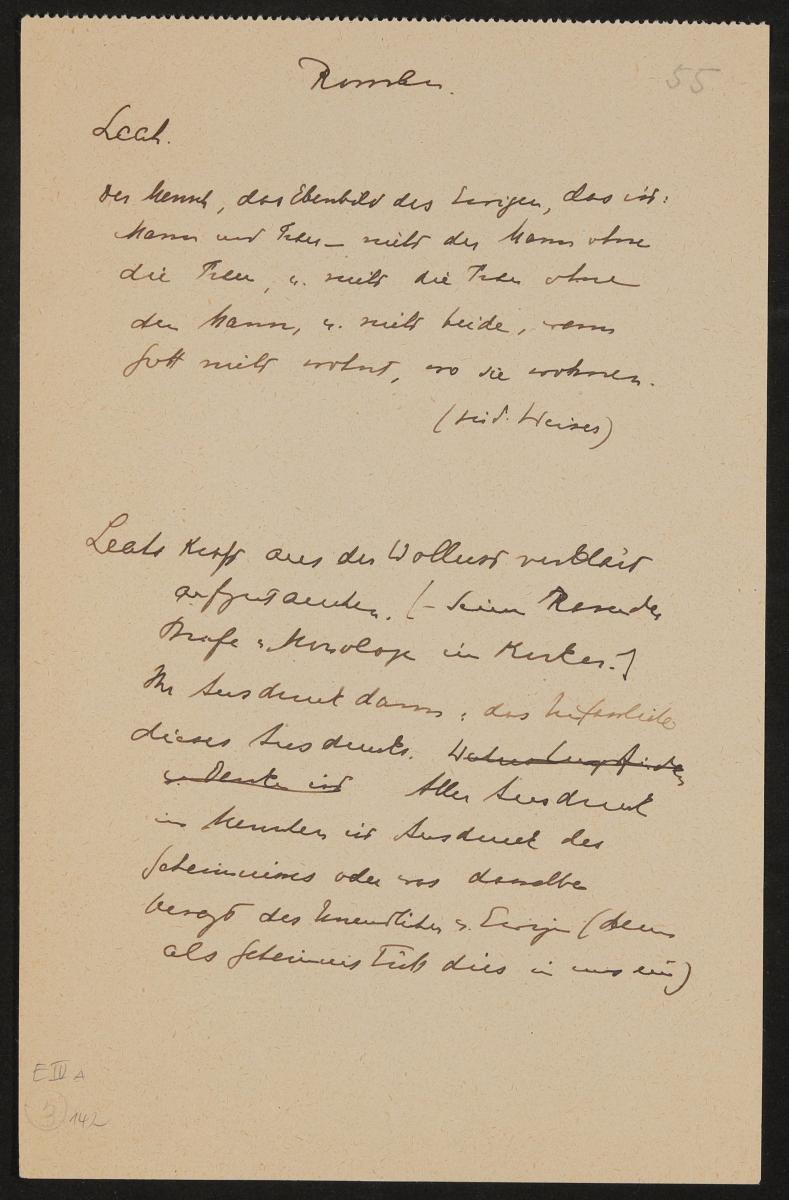 55
Leah.
Der Mensch, das Ebenbild des Ewigen, das ist:
Mann und Frau – nicht der Mann ohne
die Frau, u. nicht die Frau ohne
den Mann, u. nicht beide, wenn
Gott nicht wohnt, wo sie wohnen.
(jüd. Weiser)
Leahs Kraft aus der Wollust verklärt
aufzutauchen. (–
Strafe u. Monologe im Kerker.)
Ihr Ausdruck dann, das
dieses Ausdrucks.
u. Denken ist Aller Ausdruck
im Menschen ist Ausdruck des
Geheimnisses oder was dasselbe
besagt des Unendlichen u. Ewigen (denn
als Geheimnis tritt dies in uns ein)
E IV A
3 142